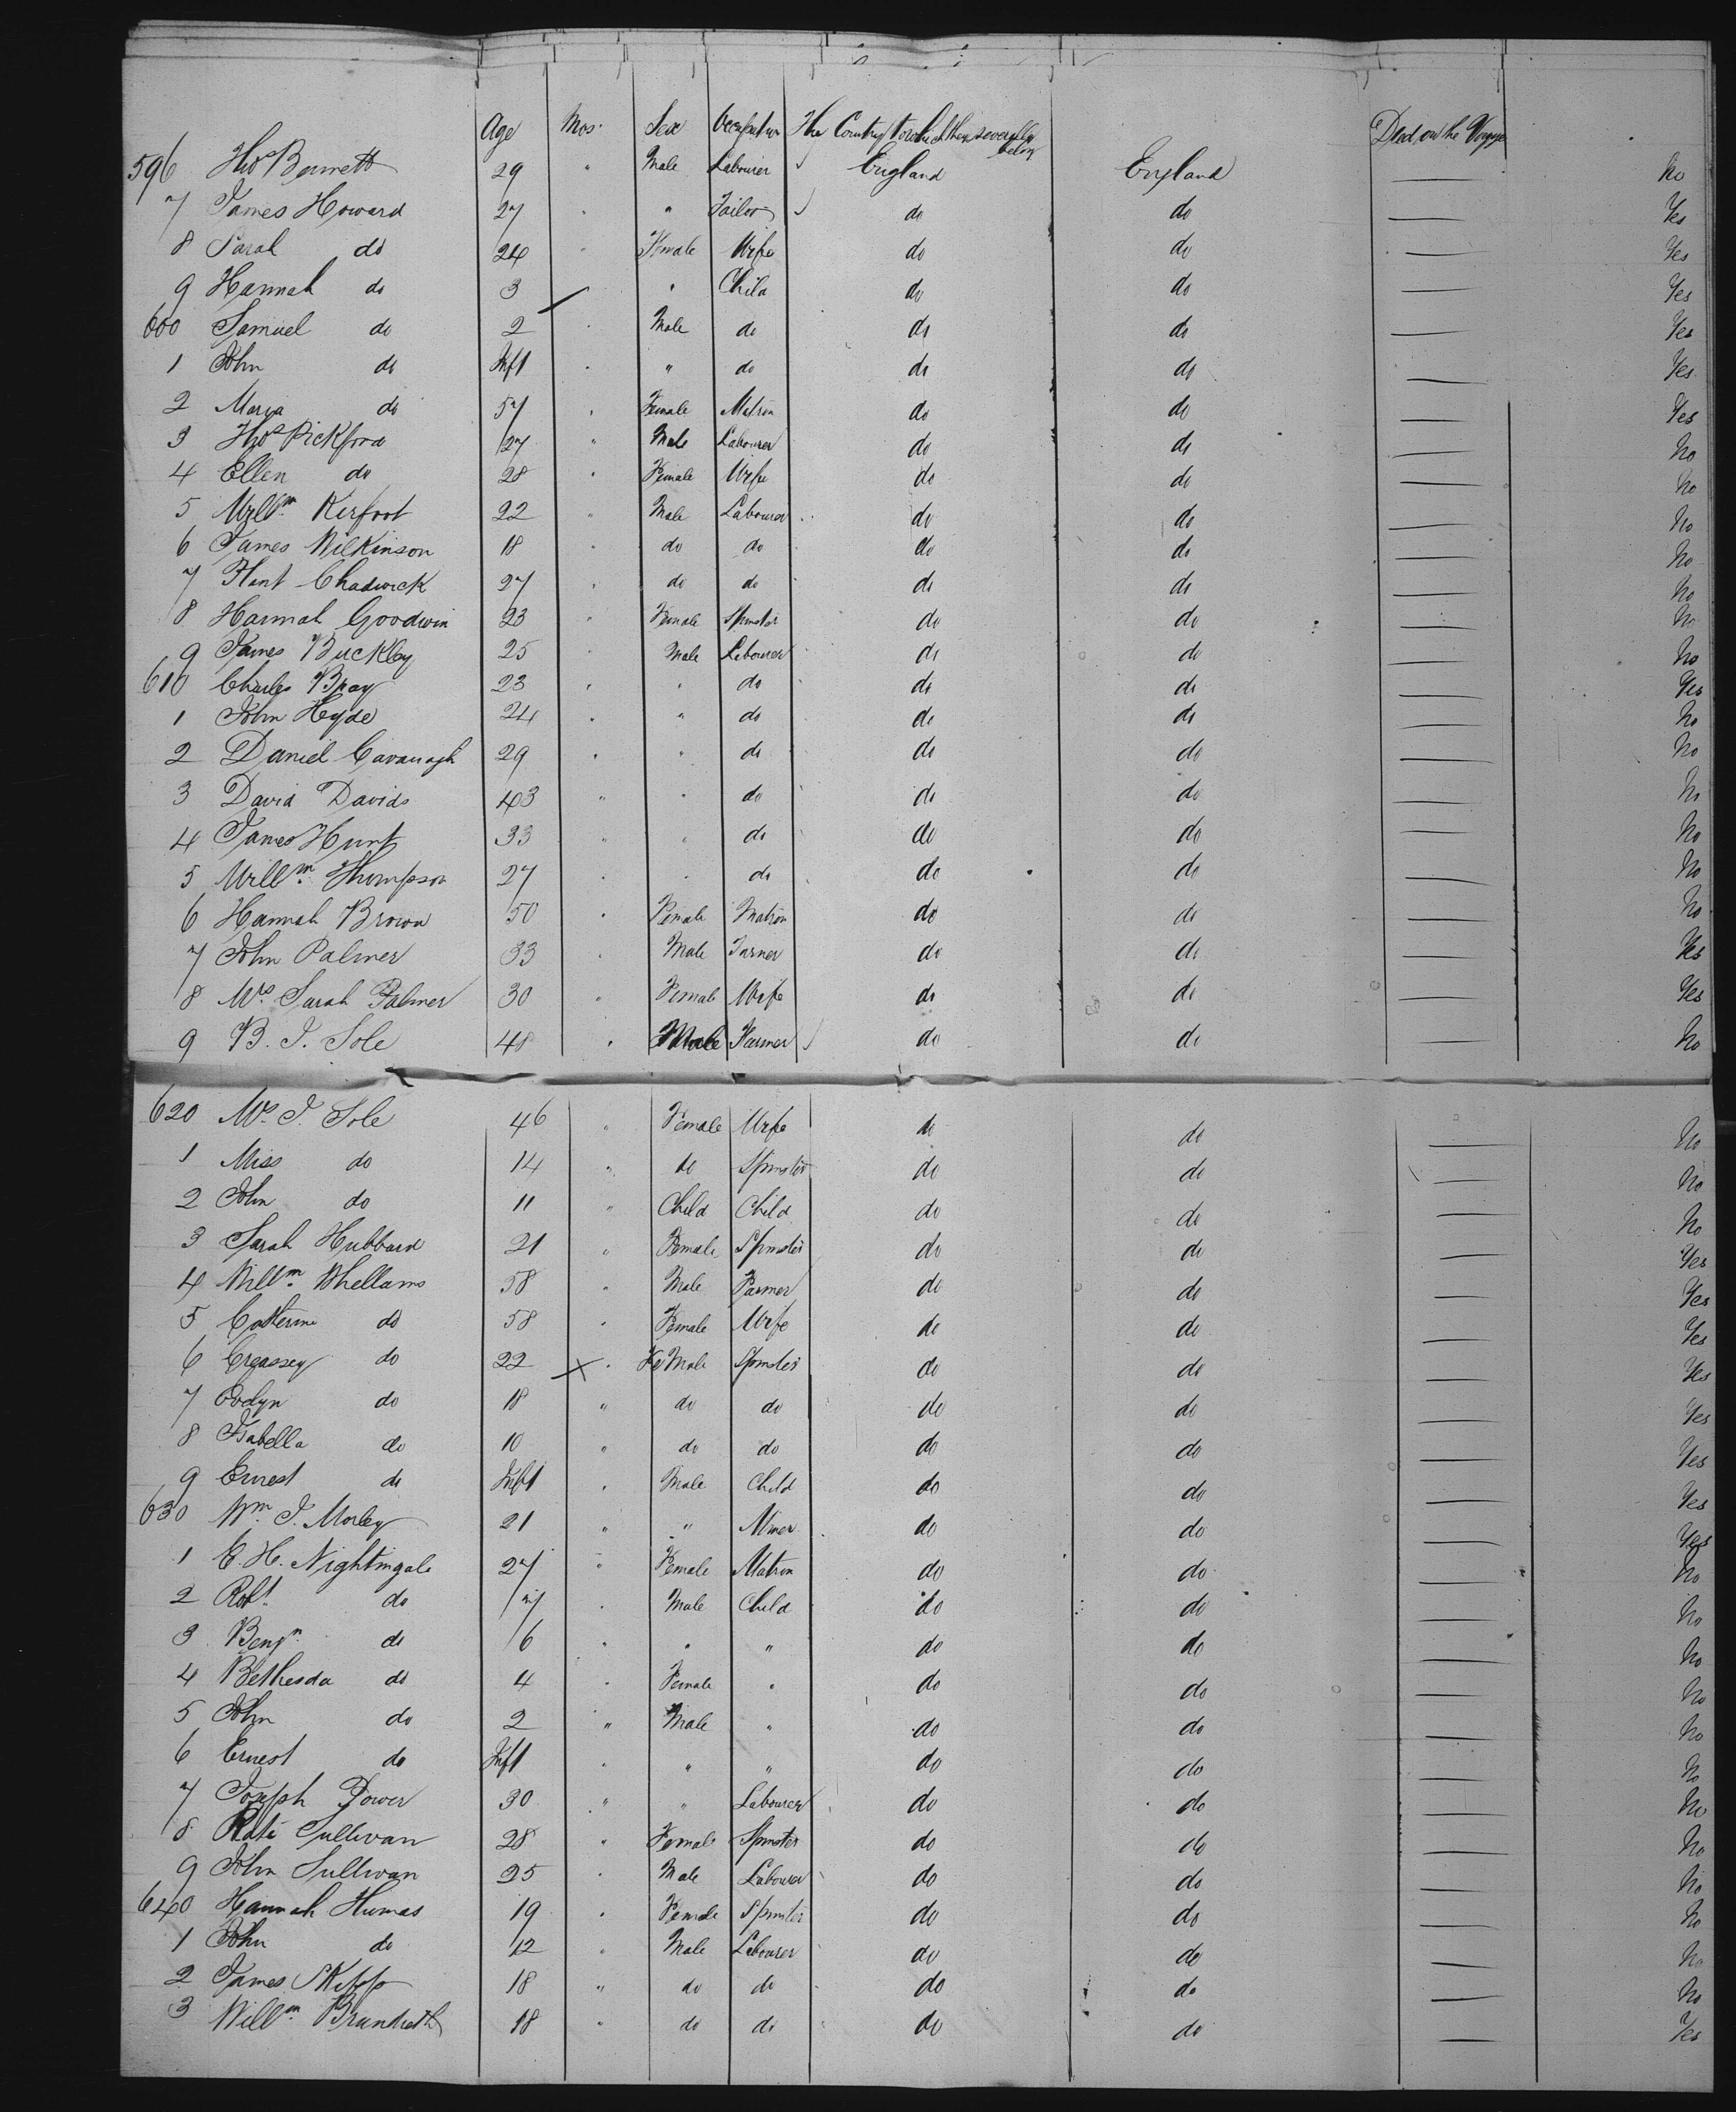 Age Mos. Sex Occupation The Country to which they severally belong Died on the Voyage
596 Thos Bennett 29 " Male Labourer England England — No
7 James Howard 27 " " Tailor do do — Yes
8 Sarah do 24 " Female Wife do do — Yes
9 Hannah do 3 " " Child do do — Yes
600 Samuel do 2 " Male do do do — Yes
1 John do Inft " " do do do — Yes
2 Maria do 57 " Female Matron do do — Yes
3 Thos Pickford 27 " Male Labourer do do — No
4 Ellen do 28 " Female Wife do do — No
5 Willm Kerfoot 22 " Male Labourer do do — No
6 James Wilkinson 18 " do do do do — No
7 Hant Chadwick 27 " do do do do — No
8 Hannah Goodwin 23 " Female Spinster do do — No
9 James Buckley 25 " Male Labourer do do — No
610 Charles Bray 23 " " do do do — Yes
1 John Hyde 24 " " do do do — No
2 Daniel Cavanagh 29 " " do do do — No
3 David Davids 43 " " do do do — No
4 James Hunt 33 " " do do do — No
5 Willm Thompson 27 " " do do do — No
6 Hannah Brown 50 " Female Matron do do — No
7 John Palmer 33 " Male Farmer do do — Yes
8 Mrs Sarah Palmer 30 " Female Wife do do — Yes
9 B. J. Sole 48 " Male Farmer do do — No
620 Mrs J. Sole 46 " Female Wife do do — No
1 Miss do 14 " do Spinster do do — No
2 John do 11 " Child Child do do — No
3 Sarah Hubbard 21 " Female Spinster do do — Yes
4 Willm Whellams 58 " Male Farmer do do — Yes
5 Catterine do 58 " Female Wife do do — Yes
6 Creassey do 22 " FeMale Spinster do do — Yes
7 Evelyn do 18 " do do do do — Yes
8 Isabella do 10 " do do do do — Yes
9 Ernest do Inft " Male Child do do — Yes
630 Wm J. Morley 21 " " Miner do do — Yes
1 E. H. Nightingale 27 " Female Matron do do — No
2 Robt do 7 " Male Child do do — No
3 Benjn do 6 " " " do do — No
4 Bethesda do 4 " Female " do do — No
5 John do 2 " Male " do do — No
6 Ernest do Inft " " " do do — No
7 Joseph Power 30 " " Labourer do do — No
8 Kate Sullivan 28 " Female Spinster do do — No
9 John Sullivan 25 " Male Labourer do do — No
640 Hannah Humas 19 " Female Spinster do do — No
1 John do 12 " Male Labourer do do — No
2 James Skipp 18 " do do do do — No
3 Willm Brandreth 18 " do do do do — Yes